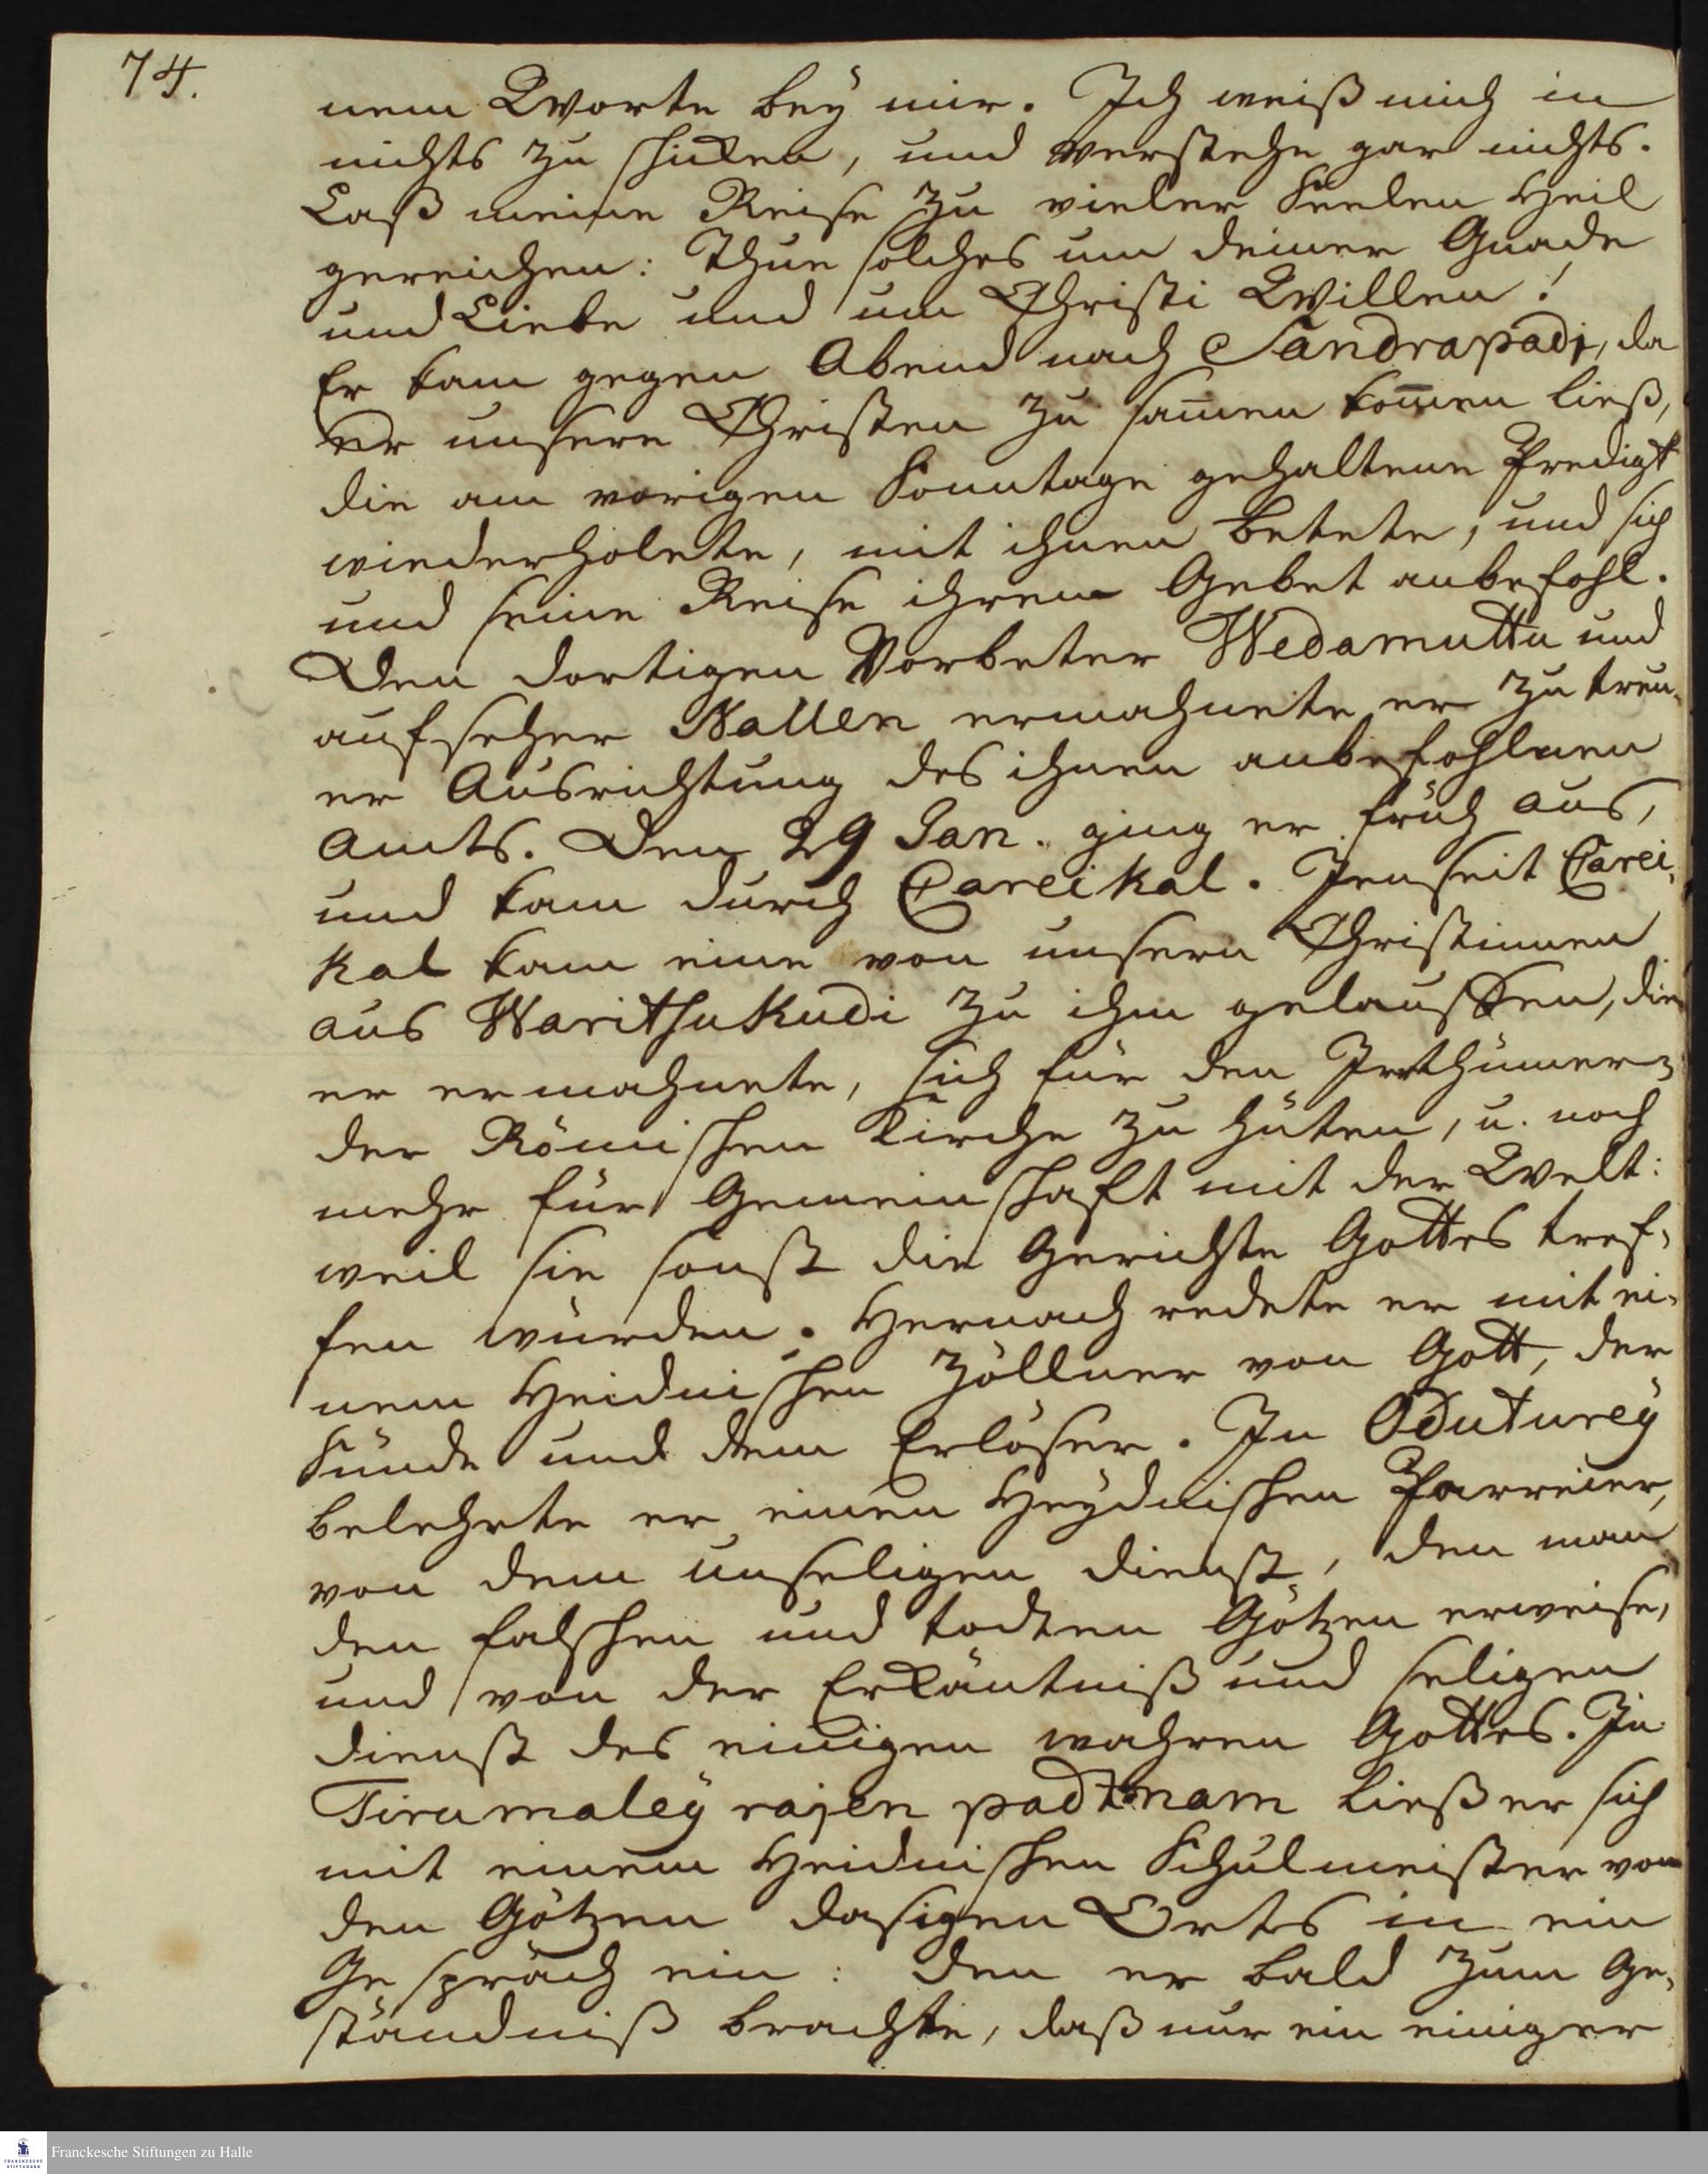 74.
nem Worte bey mir. Ich weiß mich in
nichts zu schicken, und verstehe gar nichts.
Laß meine Reise zu vieler Seelen Heil
gereichen: Thue solches um deiner Gnade
und Liebe und um Christi Willen!
Er kam gegen Abend nach Sandrapadi, da
er unsere Christen zu sam̄en kom̄en ließ,
die am vorigen Sonntage gehaltene Predigt
wiederholete, mit ihnen betete, und sich
und seine Reise ihrem Gebet anbefohl.
Den dortigen Vorbeter Wedamuttu und
aufseher Nallen ermahnete er zu treu-
er Ausrichtung des ihnen anbefohlnen
Amts. Den 29 Jan. ging er früh aus,
und kam durch Careikal. Jenseit Carei-
kal kam eine von unsern Christinnen
aus Warithukudi zu ihm gelauffen, die
er ermahnete, sich für den Irrthümern
der Römischen Kirche zu hüten, u. noch
mehr für Gemeinschaft mit der Welt:
weil sie sonst die Gerichte Gottes tref-
fen würden. Hernach redete er mit ei-
nem Heidnischen Zöllner von Gott, der
Sünde und dem Erlöser. In Oduturey
belehrte er einen Heydnischen Parreier,
von dem unseligen dienst, den man
den falschen und todten Götzen erweise,
und von der Erkäntniß und seligen
dienst des einigen wahren Gottes. In
Tirumaleyrajenpadtnam ließ er sich
mit einem Heidnischen Schulmeister von
den Götzen dasigen Orts in ein
Gespräch ein: den er bald zum Ge-
ständniß brachte, daß nur ein einiger
Franckesche Stiftungen zu Halle